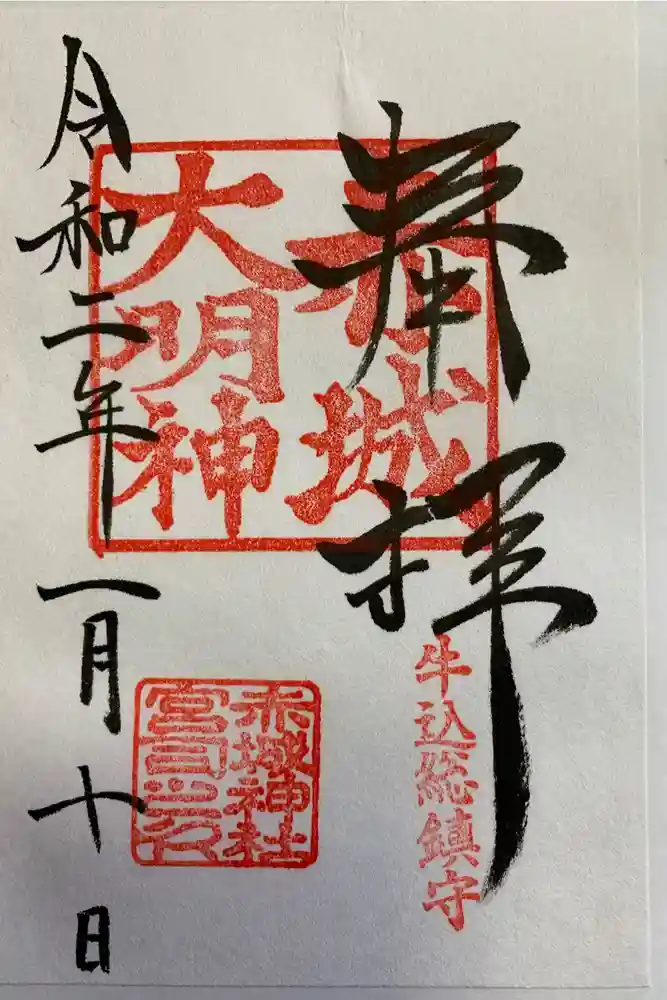 奉拝
赤城
大明神
牛込総鎮守
赤城神社
宮司之印
令和二年 一月十日